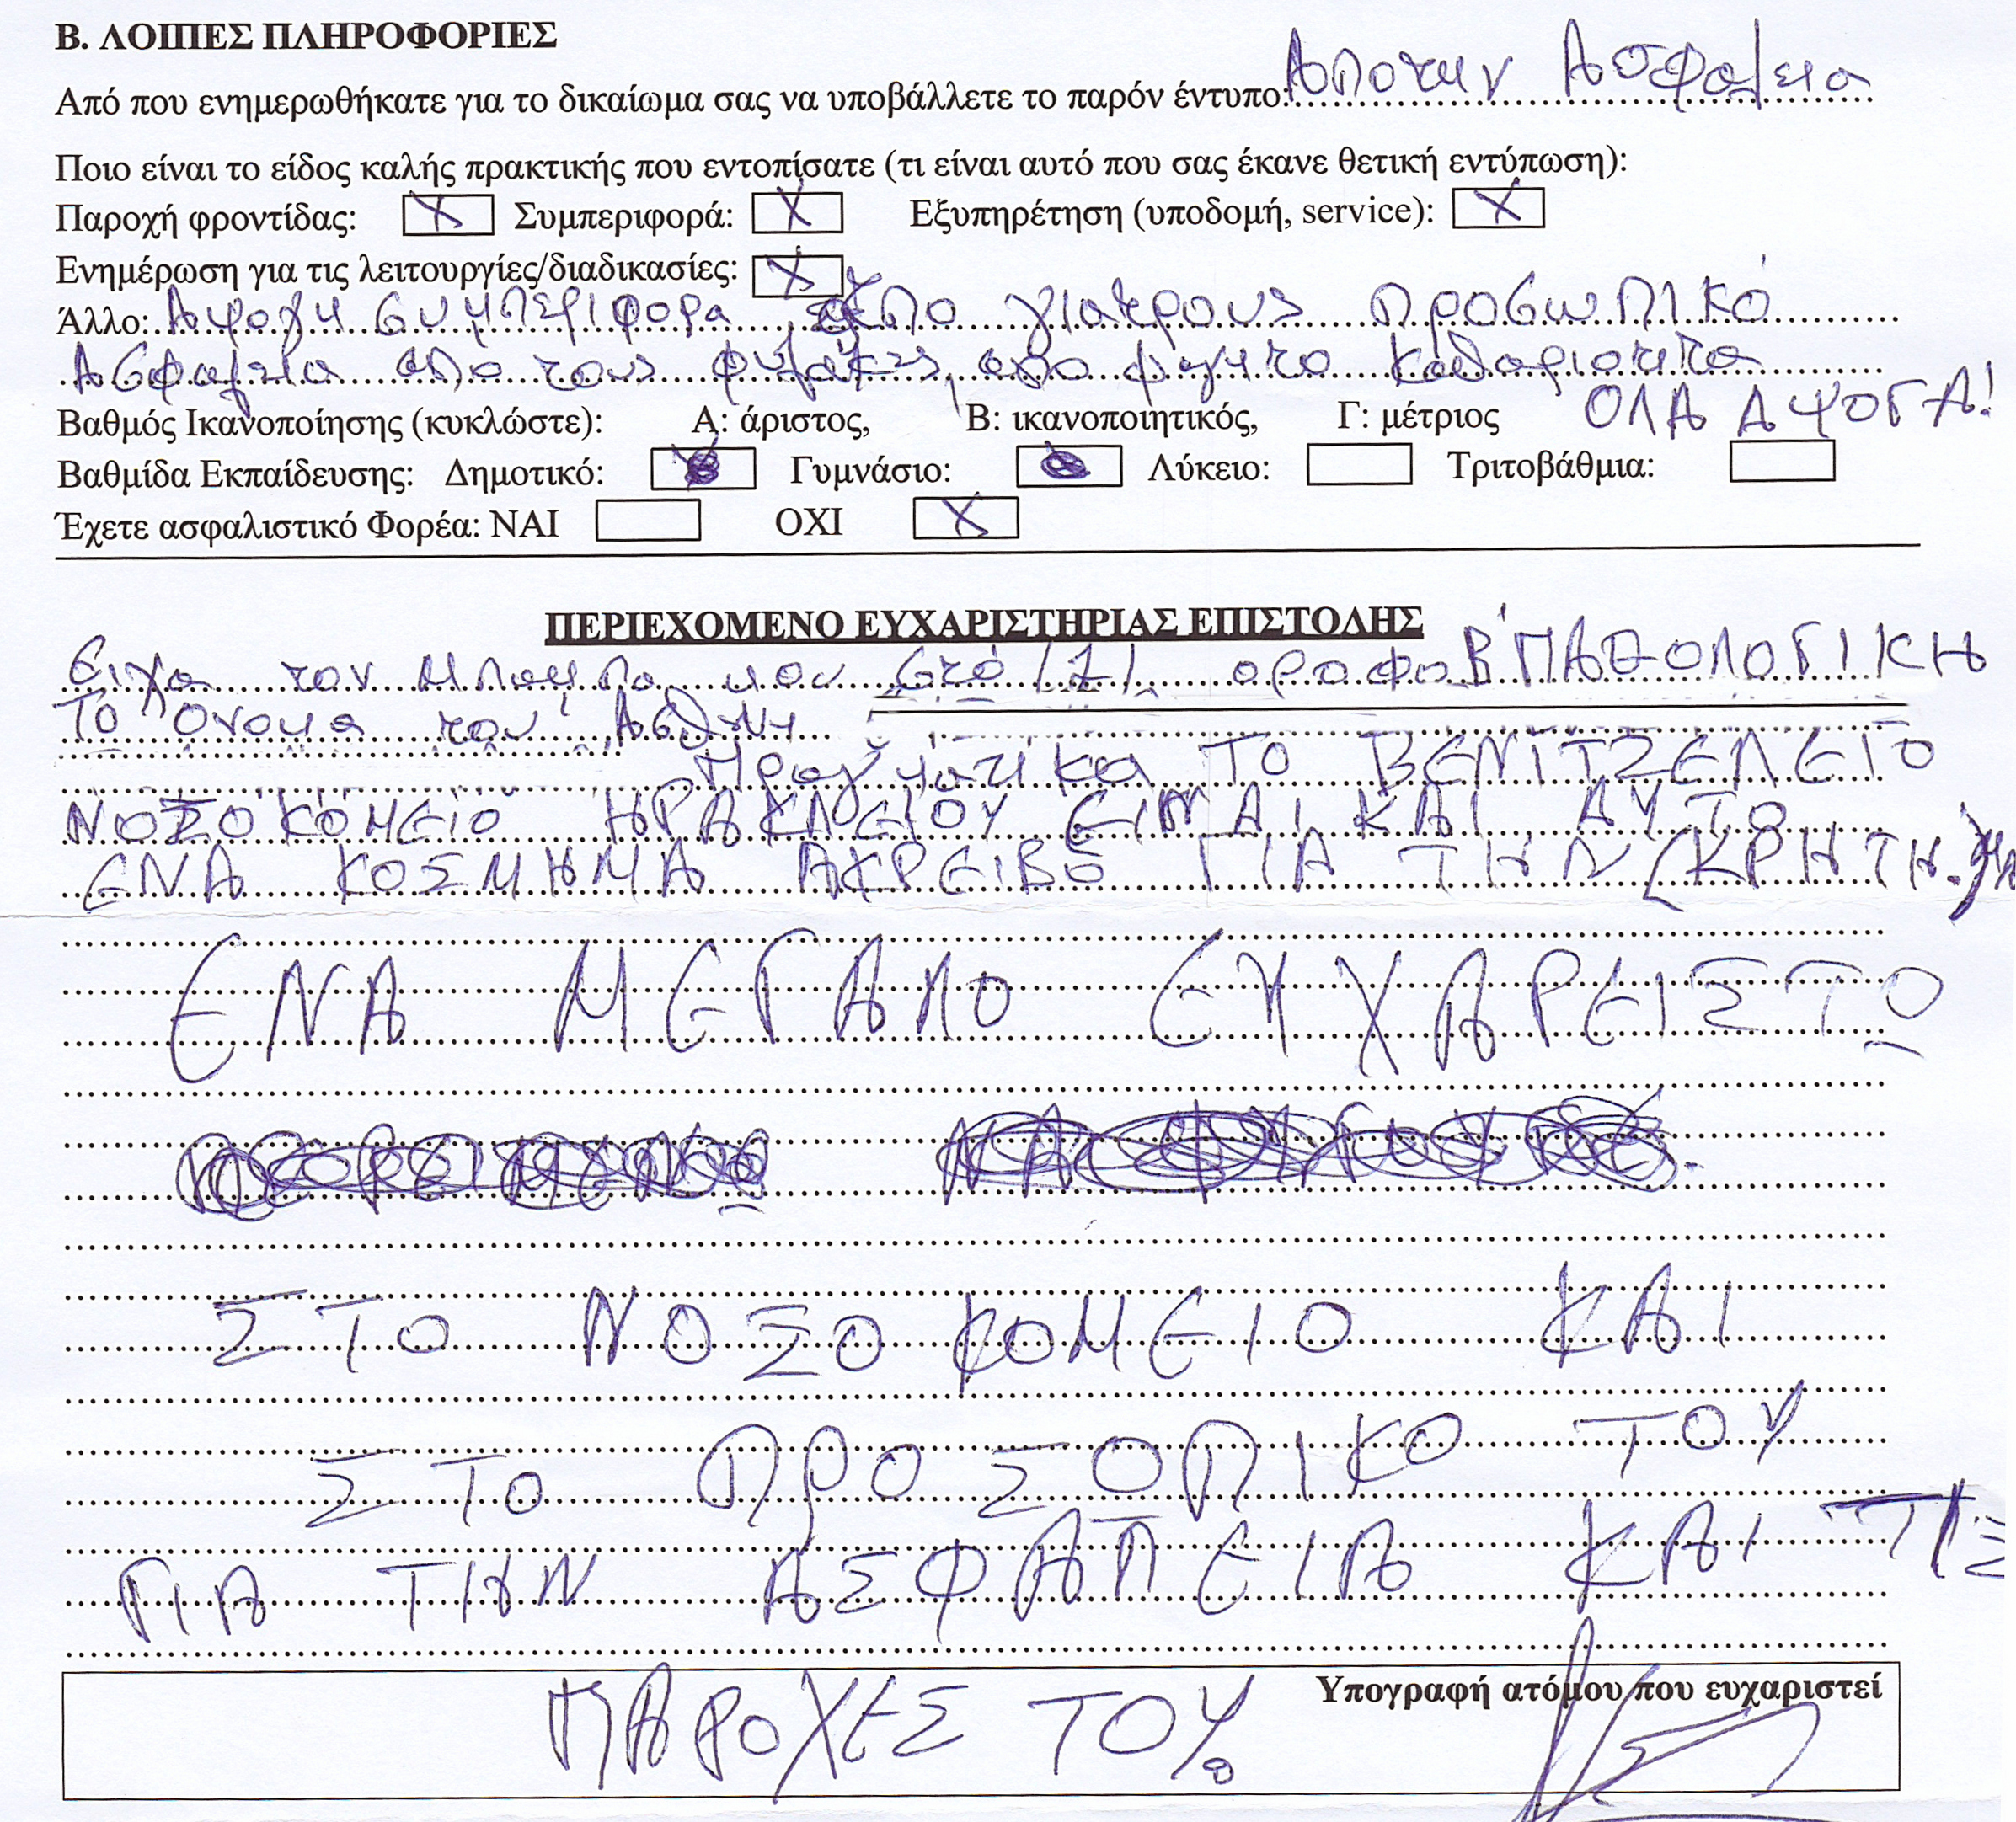 Β. ΛΟΙΠΕΣ ΠΛΗΡΟΦΟΡΙΕΣ
Από που ενημερωθήκατε για το δικαίωμα σας να υποβάλλετε το παρόν έντυπο: Απο την Ασφαλεια
Ποιο είναι το είδος καλής πρακτικής που εντοπίσατε (τι είναι αυτό που σας έκανε θετική εντύπωση):
Παροχή φροντίδας: X Συμπεριφορά: X Εξυπηρέτηση (υποδομή, service): X
Ενημέρωση για τις λειτουργίες/διαδικασίες: X
Άλλο: Αψογη συμπεριφορα απο γιατρους προσωπικό
Ασφαλεια απο τους φυλακες, απο φαγητο καθαριοτητα
ΟΛΑ ΑΨΟΓΑ!
Βαθμός Ικανοποίησης (κυκλώστε): Α: άριστος, Β: ικανοποιητικός, Γ: μέτριος
Βαθμίδα Εκπαίδευσης: Δημοτικό: Γυμνάσιο: Λύκειο: Τριτοβάθμια:
Έχετε ασφαλιστικό Φορέα: ΝΑΙ ΟΧΙ X
ΠΕΡΙΕΧΟΜΕΝΟ ΕΥΧΑΡΙΣΤΗΡΙΑΣ ΕΠΙΣΤΟΛΗΣ
Ειχα τον Μπαμπα μου στο 1 οροφο Β' ΠΑΘΟΛΟΓΙΚΗ
Το όνομα του
Πραγματικα ΤΟ ΒΕΝΙΤΣΕΛΕΙΟ
ΝΟΣΟΚΟΜΕΙΟ ΗΡΑΚΛΕΙΟΥ ΕΙΝΑΙ ΚΑΙ ΑΥΤΟ
ΕΝΑ ΚΟΣΜΗΜΑ ΑΚΡΕΙΒΟ ΓΙΑ ΤΗΝ (ΚΡΗΤΗ.)
ΕΝΑ ΜΕΓΑΛΟ ΕΥΧΑΡΕΙΣΤΟ
ΣΤΟ ΝΟΣΟΚΟΜΕΙΟ ΚΑΙ
ΣΤΟ ΠΡΟΣΟΠΙΚΟ ΤΟΥ
ΓΙΑ ΤΗΝ ΑΣΦΑΛΕΙΑ ΚΑΙ ΤΙΣ
ΠΑΡΟΧΕΣ ΤΟΥ.
Υπογραφή ατόμου που ευχαριστεί